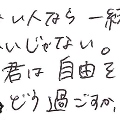 い人なら 一緒
いじゃない。
君は自由を
どう過ごすか、